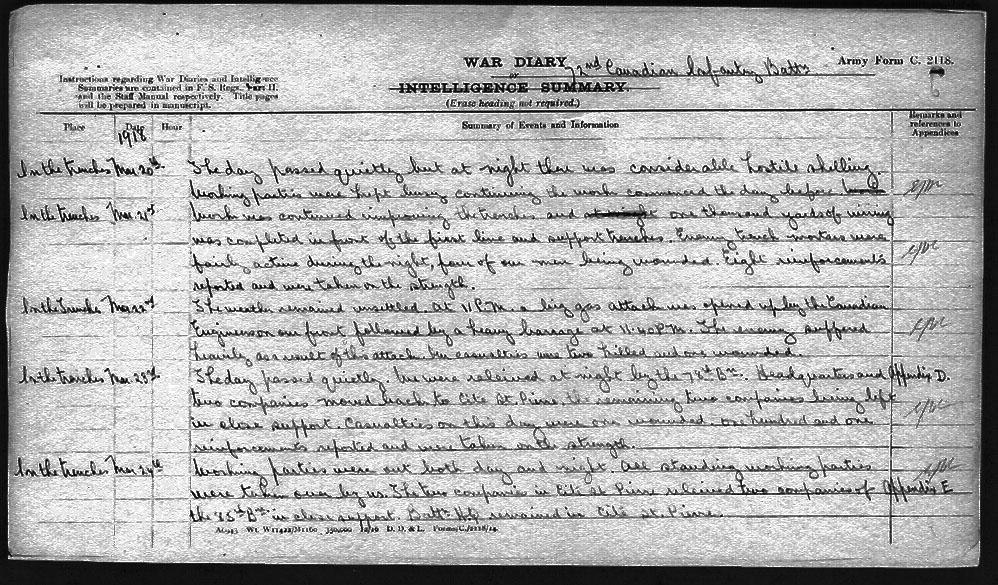 WAR DIARY 72nd Canadian Infantry Battn Army Form C. 2118.
or
INTELLIGENCE SUMMARY.
(Erase heading not required.)
Instructions regarding War Diaries and Intelligence
Summaries are contained in F. S. Regs., Part II.
and the Staff Manual respectively. Title pages
will be prepared in manuscript.
Place Date Hour Summary of Events and Information Remarks and references to Appendices
1918
In the trenches Mar 20th The day passed quietly but at night there was considerable hostile shelling.
Working parties were kept busy continuing the work commenced the day before
In the trenches Mar 21st Work was continued improving the trenches and at night one thousand yards of wiring
was completed in front of the front line and support trenches. Enemy trench mortars were
fairly active during the night, four of our men being wounded. Eight reinforcements
reported and were taken on the strength.
In the Trenches Mar 22nd The weather remained unsettled. At 11 P.M. a big gas attack was opened up by the Canadian
Engineers on our front followed by a heavy barrage at 11.40 P.M. The enemy suffered
heavily as a result of this attack. Our casualties were two killed and one wounded.
In the trenches Mar 23rd The day passed quietly. We were relieved at night by the 78th Bn. Headquarters and Appendix D.
two companies moved back to Cite St. Pierre, the remaining two companies being left
in close support. Casualties on this day were one wounded. One hundred and one
reinforcements reported and were taken on the strength.
In the trenches Mar 24th Working parties were out both day and night. All standing working parties
were taken over by us. The two companies in Cite St Pierre relieved two companies of Appendix E
the 85th Bn in close support. Battn H.Q. remained in Cite St. Pierre.
350,000 D. D. & L. Forms/C./2118/14.